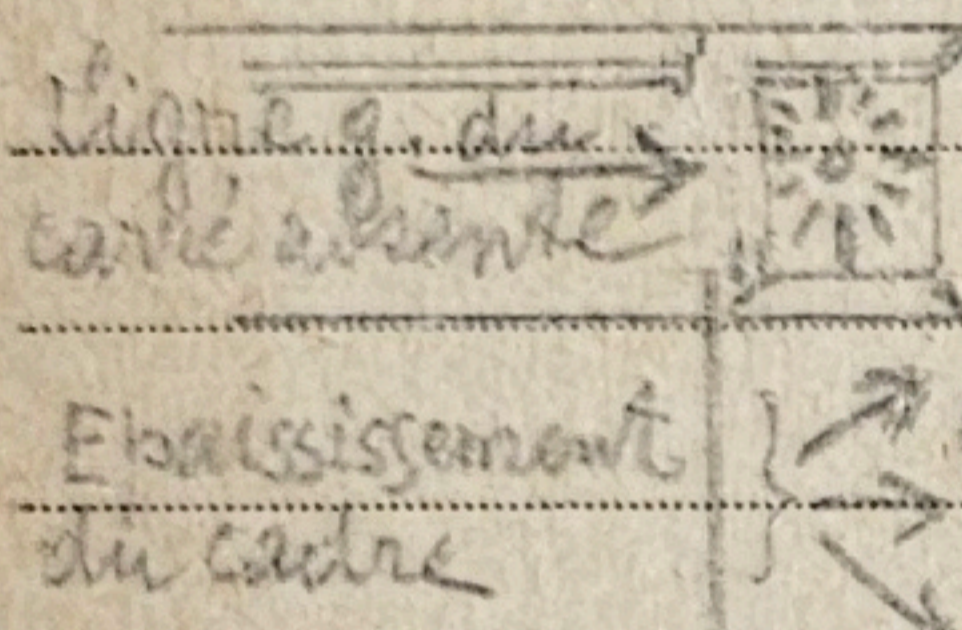 Ligne g. du
carré absente
Epaississement
du cadre